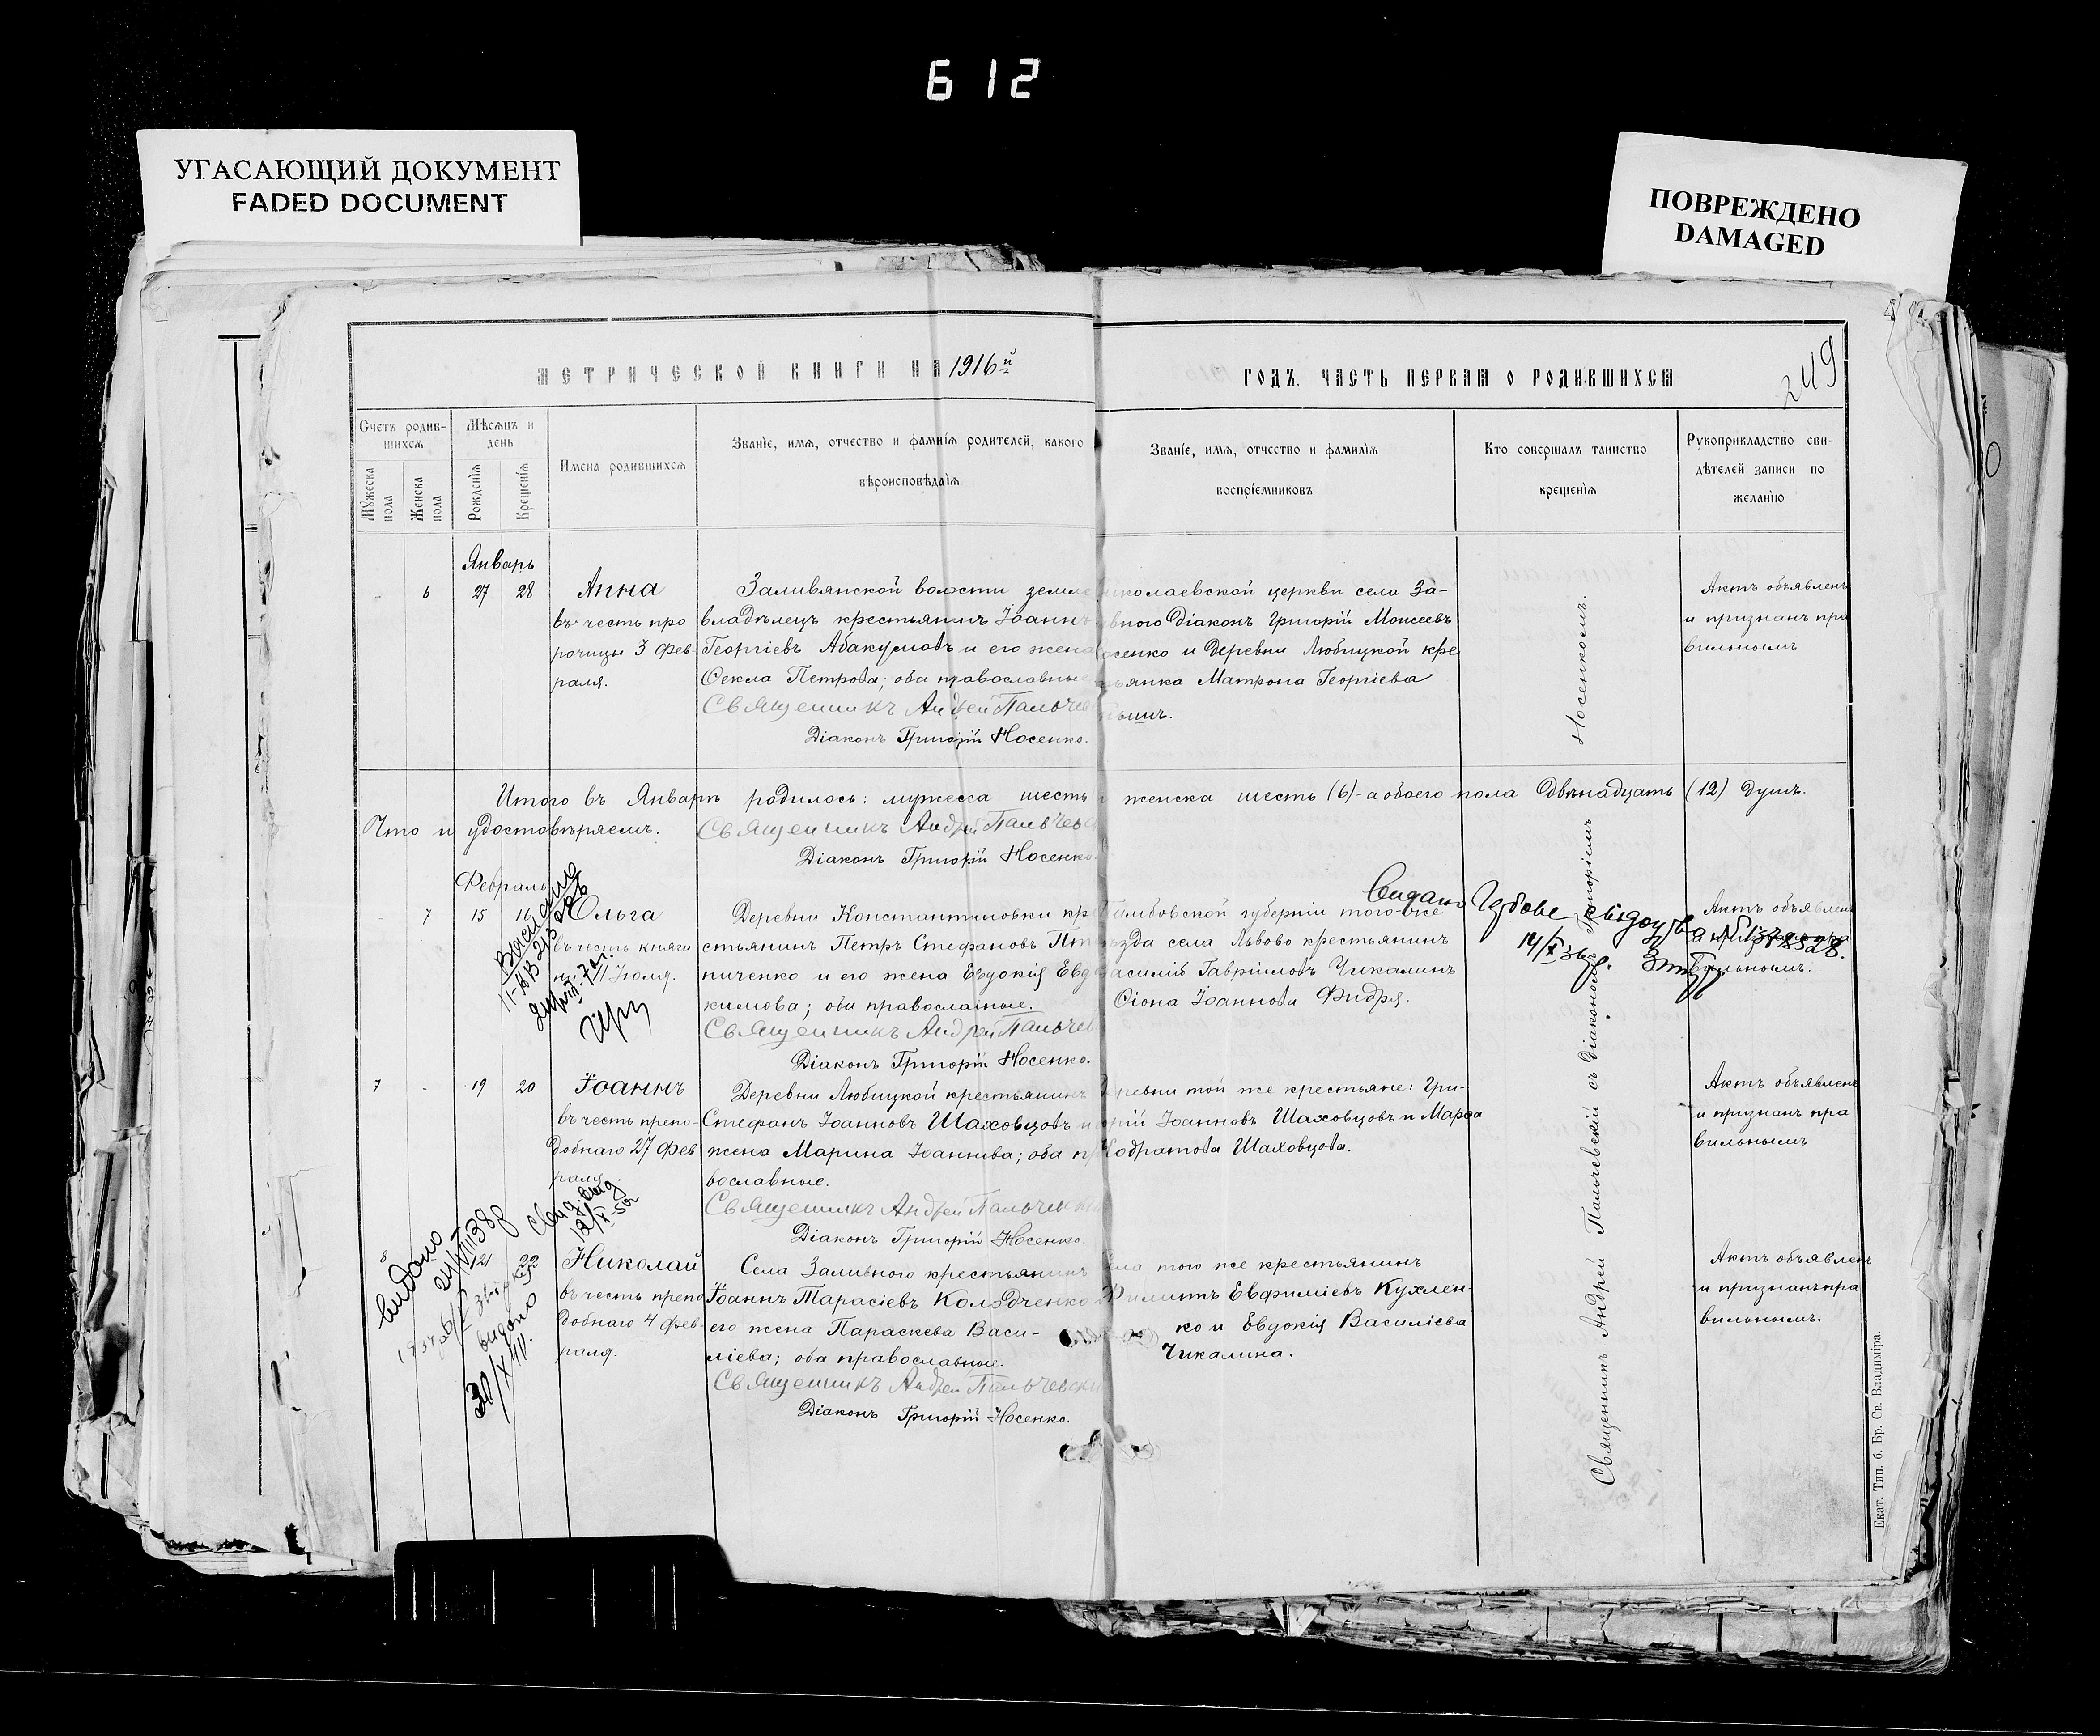 612
УГАСАЮЩИЙ ДОКУМЕНТ
FADED DOCUMENT
ПОВРЕЖДЕНО
DAMAGED
МЕТРИЧЕСКОЙ КНИГИ НА 1916й
ГОДЪ. ЧАСТЬ ПЕРВАЯ О РОДИВШИХСЯ
249
Счетъ родив-
шихся
Мужеска пола
Женска пола
Мѣсяцъ и
день
Рожденія
Крещенія
Имена родившихся
Званіе, имя, отчество и фамилія родителей, какого
вѣроисповѣданія
Званіе, имя, отчество и фамилія
воспріемниковъ
Кто совершалъ таинство
крещенія
Рукоприкладство сви-
дѣтелей записи по
желанію
Январь
- 6 27 28
Анна
въ честь про
рочицы 3 фев
раля.
Заливянской волости земле
владѣлецъ крестьянинъ Іоаннъ
Георгіевъ Абакумовъ и его жена
Ѳекла Петрова; оба православные
Священникъ Андрей Пальчев
Діаконъ Григорій Носенко.
николаевской церкви села За-
вного Діаконъ Григорій Моисеевъ
осенко и деревни Любицкой кре
ьянка Матрона Георгіева
Актъ объявленъ
и признанъ пра
вильнымъ
Итого въ Январѣ родилось: мужеска шесть и женска шесть (6) - а обоего пола двѣнадцать (12) душъ.
Что и удостовѣряемъ. Священникъ Андрей Пальчевс
Діаконъ Григорій Носенко.
Февраль
- 7 15 16
Ольга
въ честь княги
ни 11 Іюля.
Деревни Константиновки кре
стьянинъ Петръ Стефановъ Пт
ниченко и его жена Евдокія Евд
кимова; оба православные.
Священникъ Андрей Пальчев
Діаконъ Григорій Носенко.
Тамбовской губерніи того-же
ѣзда села Львово крестьянинъ
асилій Гавріиловъ Чикалинъ
Іоаннова
Актъ объявленъ
вильнымъ.
7 - 19 20
Іоаннъ
въ честь препо-
добнаго 27 фев
раля.
Деревни Любицкой крестьянинъ
Стефанъ Іоанновъ Шаховцовъ и
жена Марина Іоаннова; оба п
вославные.
Священникъ Андрей Пальчевск
Діаконъ Григорій Носенко.
ревни той же крестьяне: Гри-
орій Іоанновъ Шаховцовъ и Марѳа
Кодратова Шаховцова.
Актъ объявленъ
и признанъ пра
вильнымъ
видано
24/VIII 38 р
видано
30/X 41.
8 21 22
Николай
въ честь препо
добнаго 4 фев-
раля.
Села Заливного крестьянинъ
Іоаннъ Тарасіевъ Колядченко
его жена Параскева Васи-
ліева; оба православные.
Священникъ Андрей Пальчевски
Діаконъ Григорій Носенко.
ела того же крестьянинъ
Филиппъ Евфиміевъ Кухлен-
ко и Евдокія Василіева
Чикалина.
Актъ объявленъ
и признанъ пра
вильнымъ.
Священникъ Андрей Пальчевскій съ Діакономъ Григоріемъ Носенкомъ.
Екат. Тип. б. Бр. Св. Владиміра.